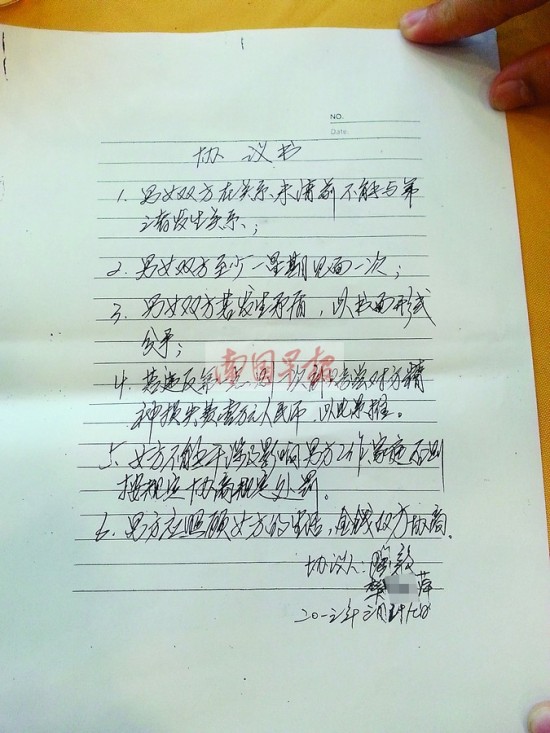 NO.
Date
协 议 书
1. 男女双方在关系未清前不能与第
三者发生关系;
2. 男女双方至少一星期见面一次;
3. 男女双方若发生矛盾，以书面形式
分手;
南国早报
4. 若违反第一 赔尝对方精
神损失费壹万元人民币，以此类推。
5. 女方不能干涉及影响男方工作家庭否则
按规定协商规定处罚。
6. 男方应照顾女方的生活，金钱双方协商。
协议人: 敦
萍
二0一三年